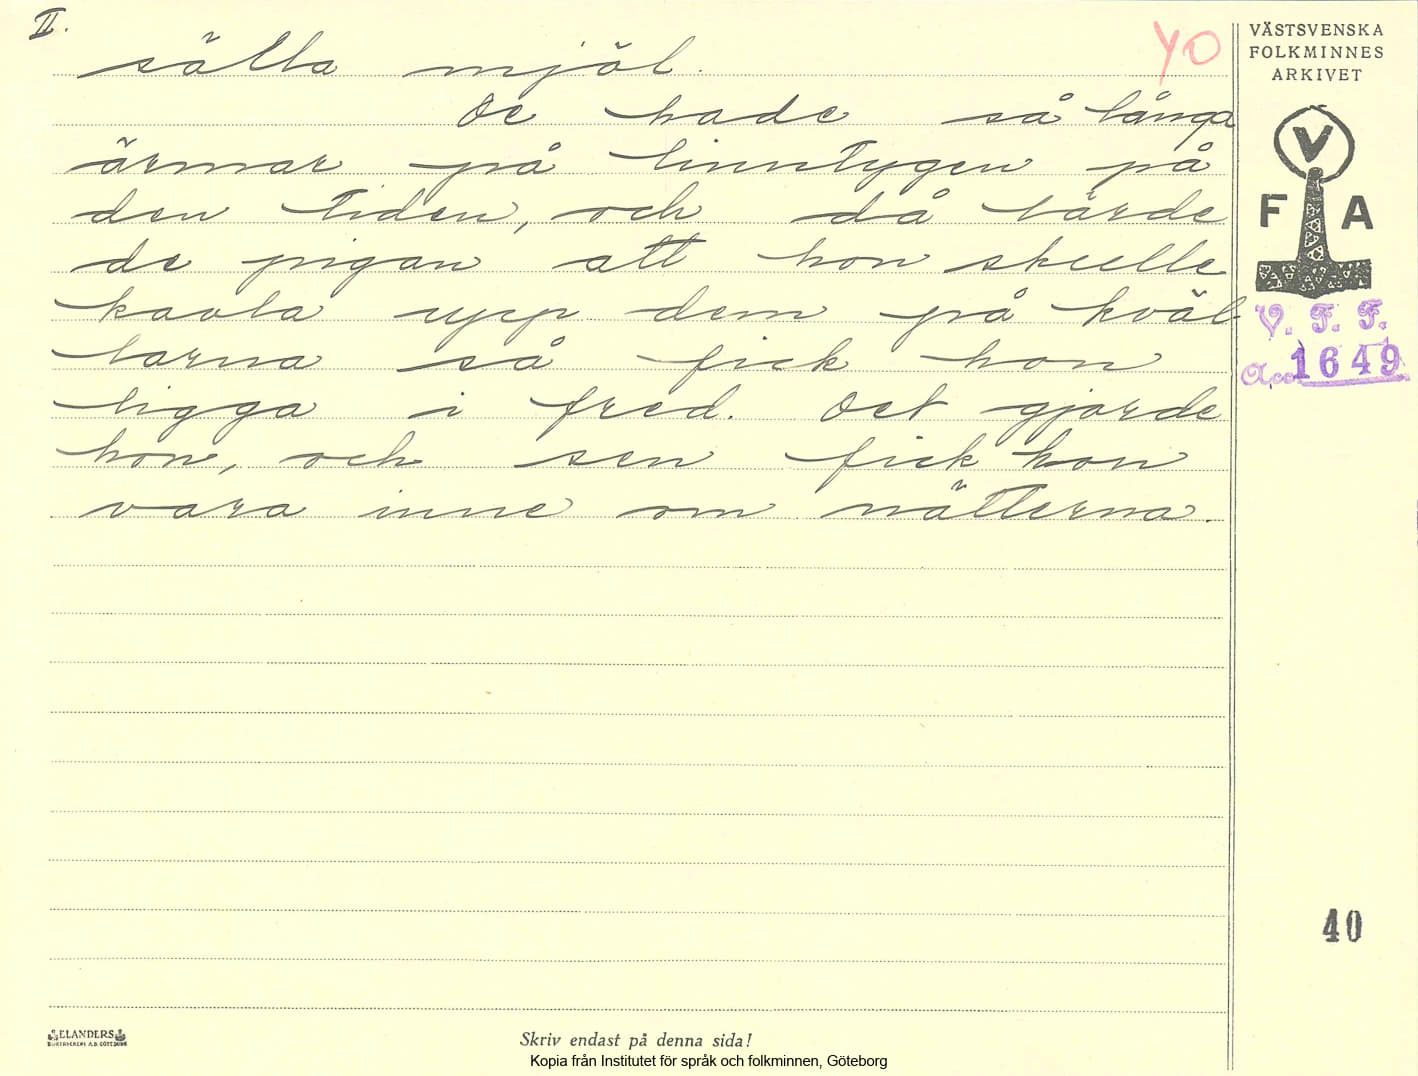 II.
sälla mjöl.
YO
VÄSTSVENSKA
FOLKMINNES
ARKIVET
De hade så långa
ärmar på linntygen på
den tiden, och då lärde
de pigan att hon skulle
kavla upp dem på kväl-
larna så fick hon
ligga i fred. Det gjorde
hon, och sen fick hon
vara inne om nätterna.
V
F A
V. F. F.
Acc. 1649
40
ELANDERS
BOKTRYCKERI A.B. GÖTEBORG
Skriv endast på denna sida!
Kopia från Institutet för språk och folkminnen, Göteborg